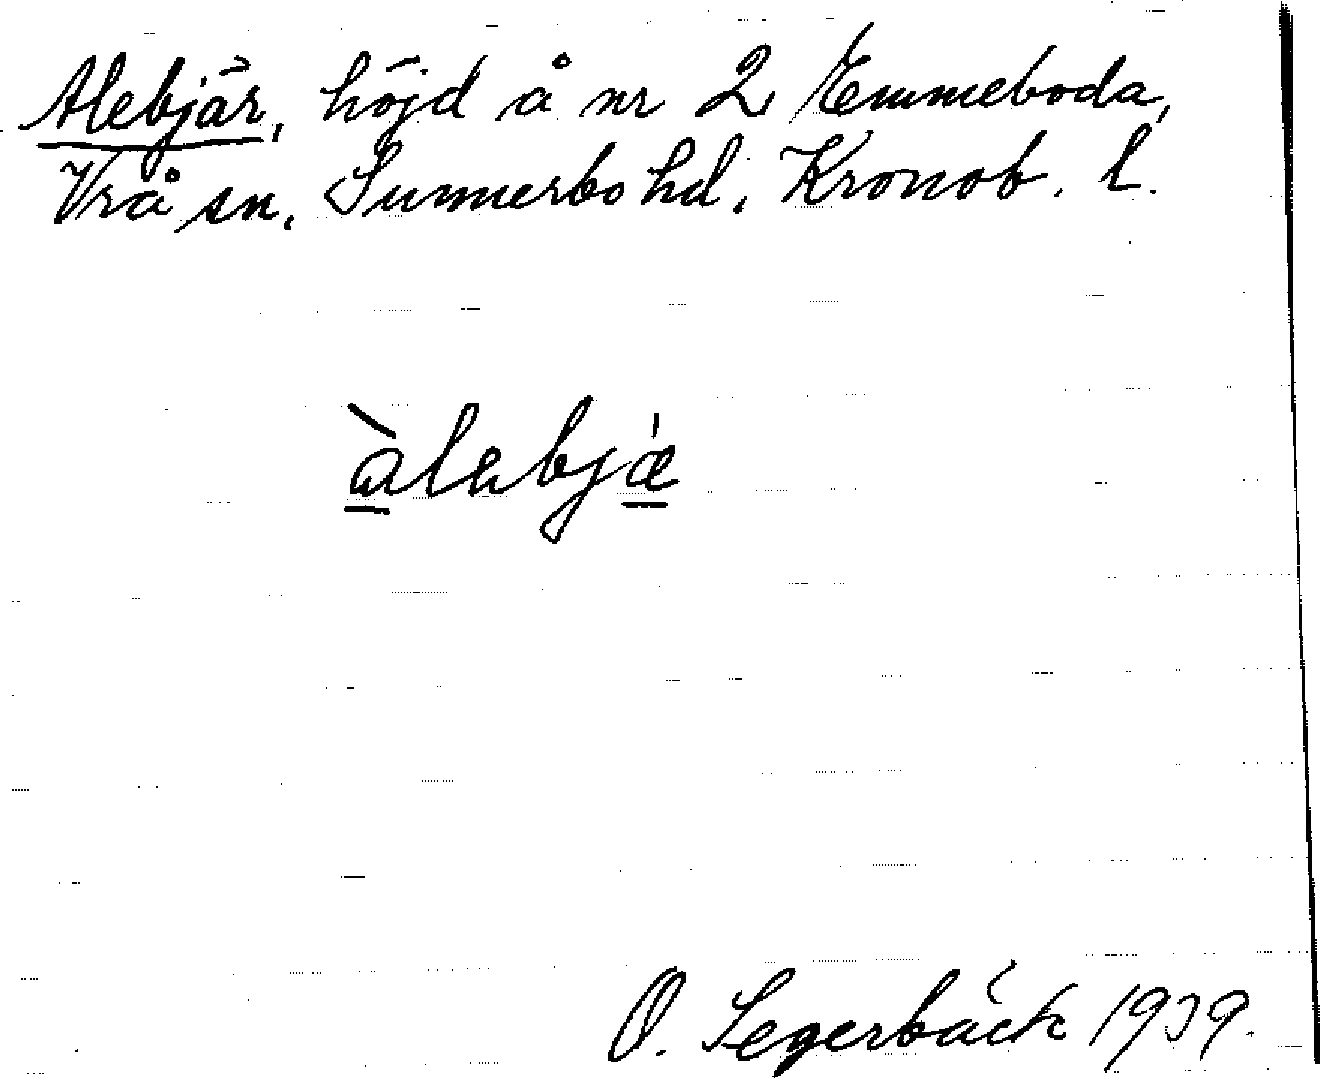 Alebjär, höjd å nr 2 Emmeboda,
Vrå sn, Sunnerbo hd, Kronob. l.
àlebjǽ
O. Segerbäck 1939.